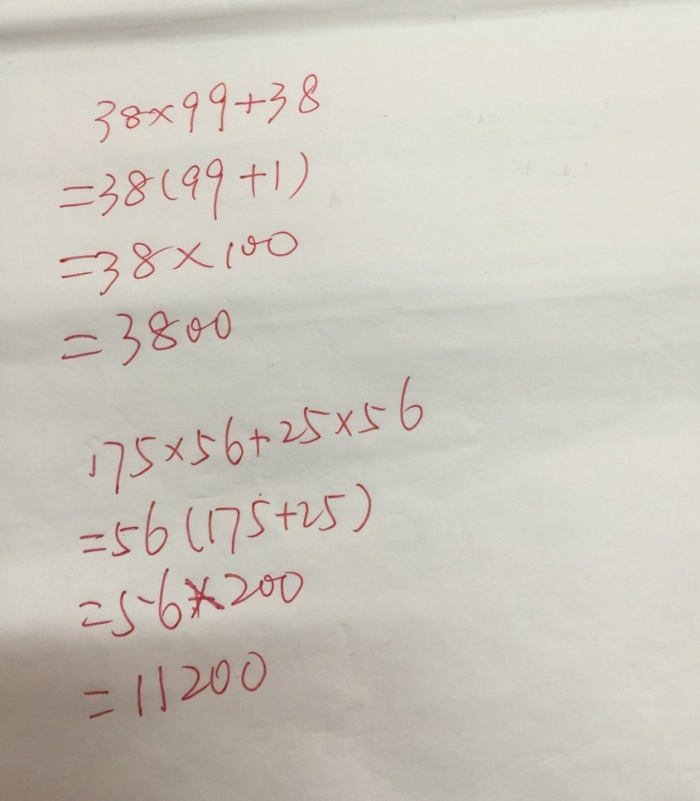 38×99+38
=38(99+1)
=38×100
=3800
175×56+25×56
=56(175+25)
=56×200
=11200